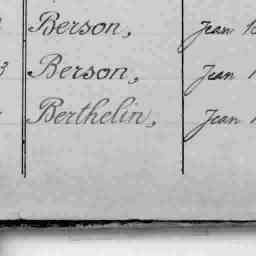 Berson, Jean
3 Berson, Jean
Berthelin, Jean